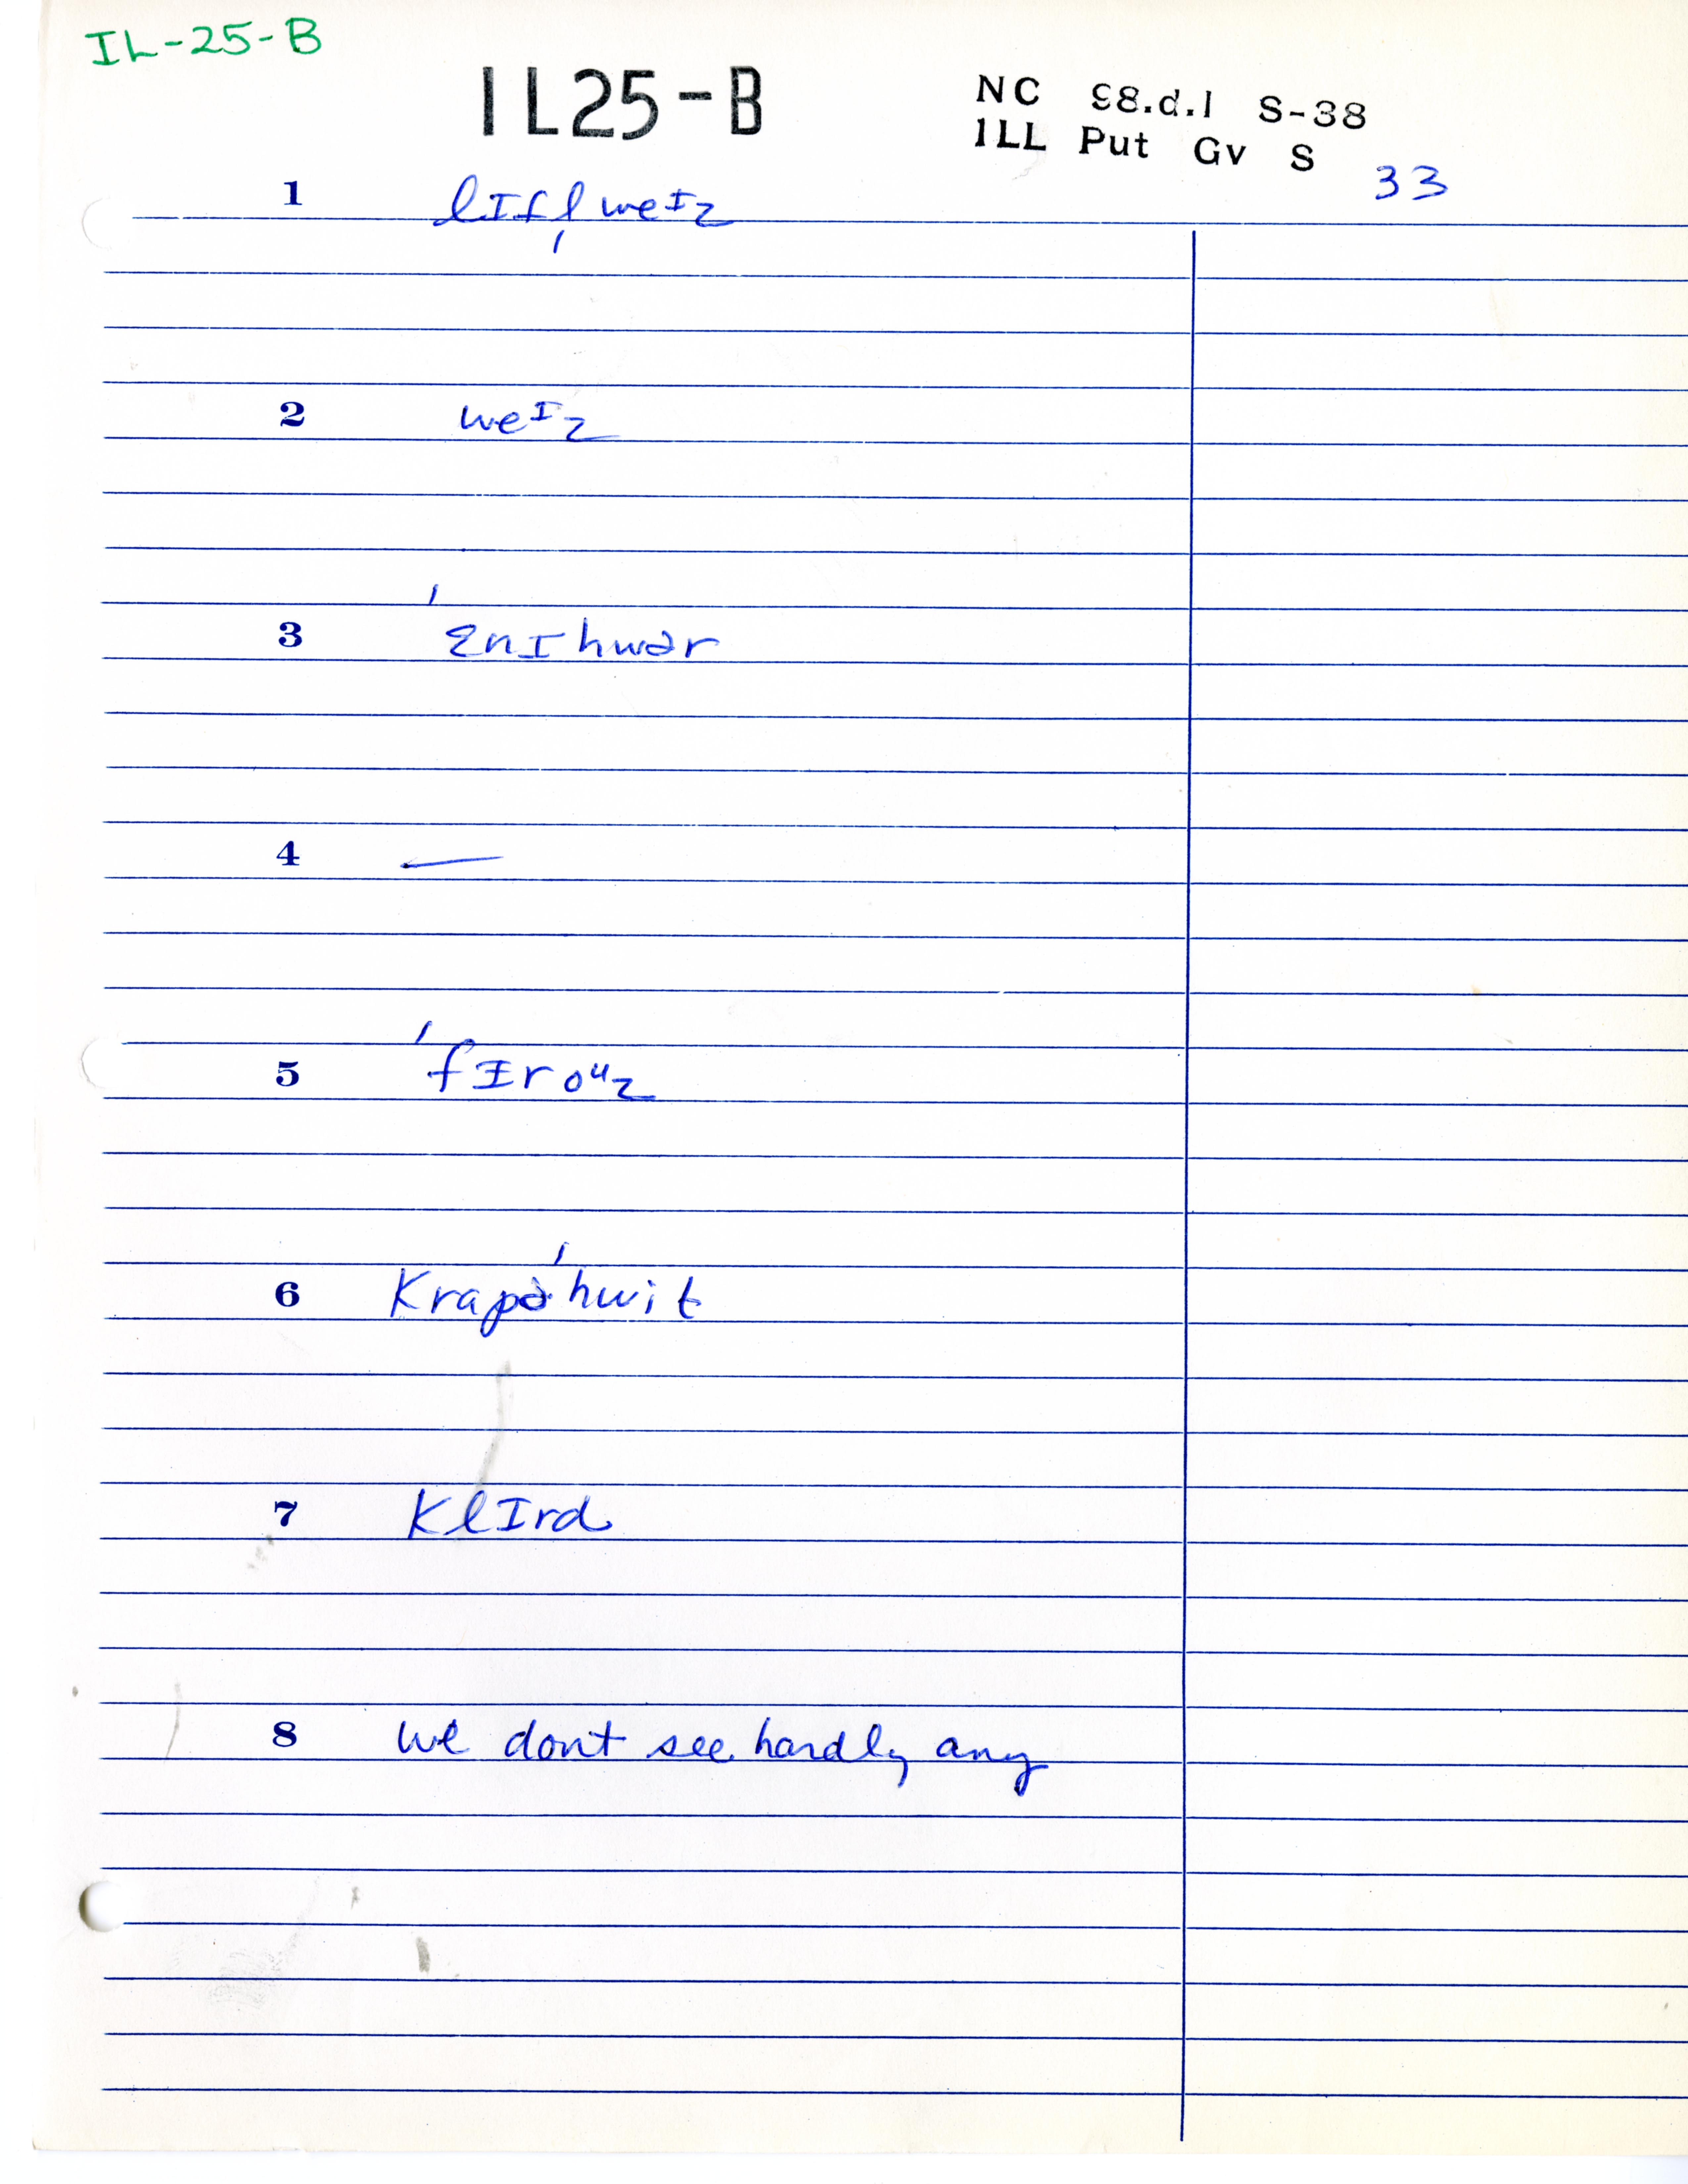 IL-25-B
1L25-B
NC 98.d.1 S-38
1LL Put Gv S
33
1 lɪfl̩weᶦz
2 weᶦz
3 ˈɛnɪhwər
4 —
5 ˈfɪroᵘz
6 krapəˈhwit
7 klɪrd
8 we dont see hardly any